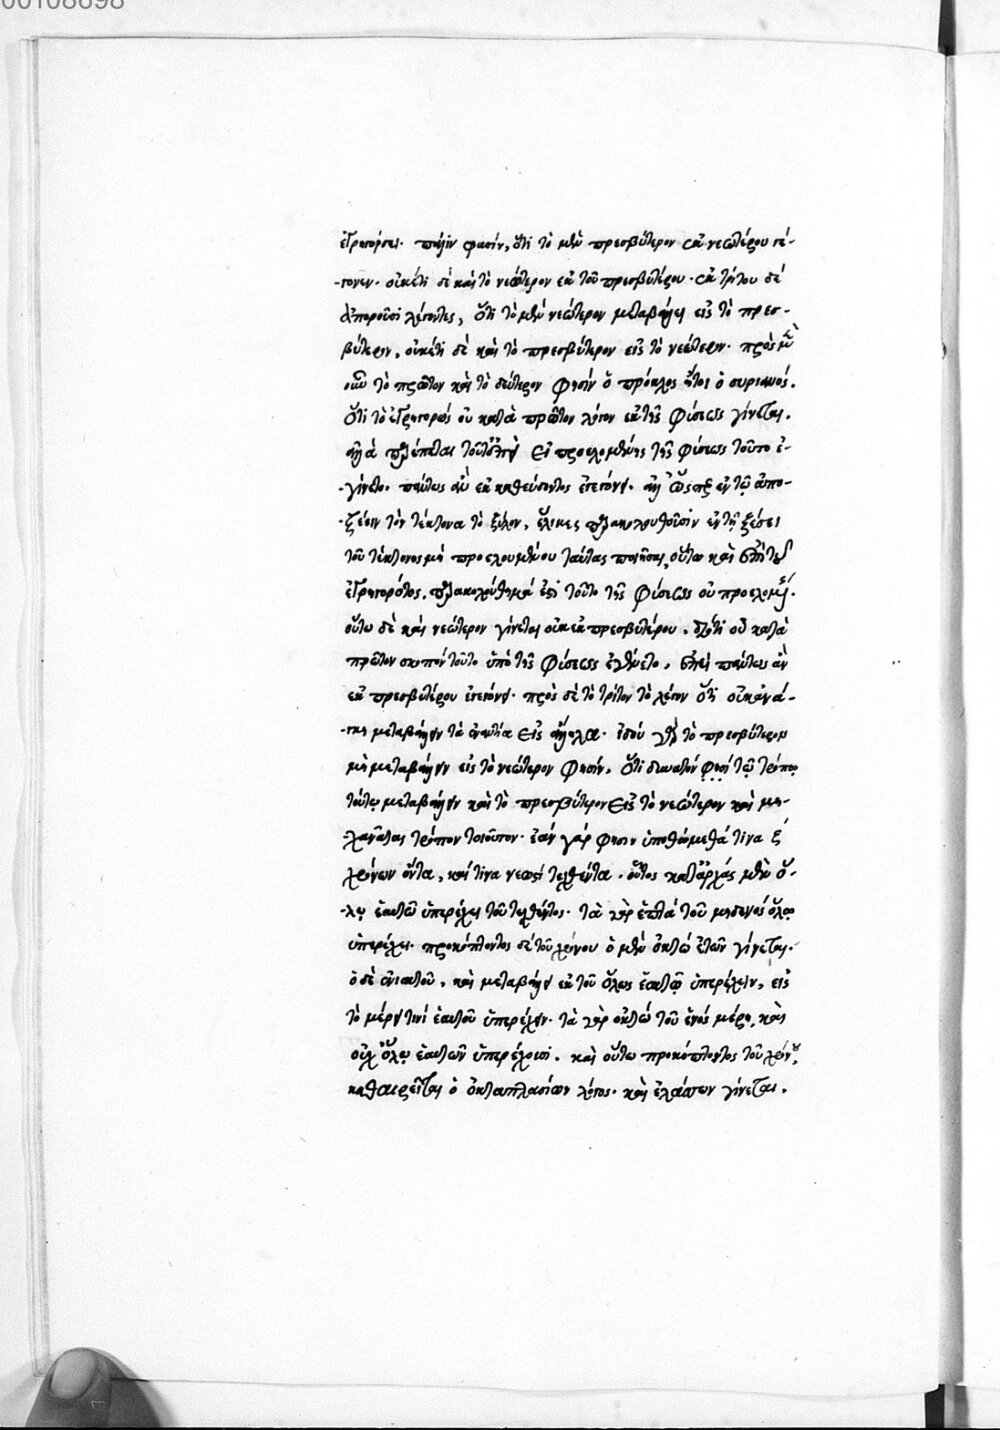 00108698
ἐγρηγόρσει. πάλιν φασὶν, ὅτι τὸ μὲν πρεσβύτερον ἐκ νεωτέρου γέ-
-γονεν. οὐκέτι δὲ καὶ τὸ νεώτερον ἐκ τοῦ πρεσβυτέρου. ἐκ τρίτου δὲ
ἀποροῦσι λέγοντες, ὅτι τὸ μὲν νεώτερον μεταβάλλει εἰς τὸ πρεσ-
βύτερον, οὐκέτι δὲ καὶ τὸ πρεσβύτερον εἰς τὸ νεώτερον. πρὸς μὲν
οὖν τὸ πρῶτον καὶ τὸ δεύτερον φησὶν ὁ πρόκλος ἤτοι ὁ συριανός.
ὅτι τὸ ἐγρηγορὸς οὐ κατὰ πρῶτον λόγον ἐκ τῆς φύσεως γίνεται.
ἀλλὰ παρέπεται τοῦτο εἰ προελομένης τῆς φύσεως τοῦτο ἐ-
-γίνετο. πάντως ἂν ἐκ καθεύδοντος ἐγεγόνει. ἀλλ' ὥσπερ ἐν τῷ ἀπο-
-ξέειν τὸν τέκτονα τὸ ξύλον, ἕλικες παρακολουθοῦσιν ἐν τῇ ξέσει
τοῦ τέκτονος μὴ προελομένου ταύτας ποιῆσαι, οὕτω καὶ ἐπὶ τοῦ
ἐγρηγορότος. παρακολούθημά ἐστι τοῦτο τῆς φύσεως οὐ προελομένης.
οὕτω δὲ καὶ νεώτερον γίνεται οὐκ ἐκ πρεσβυτέρου. διότι οὐ κατὰ
πρῶτον σκοπὸν τοῦτο ὑπὸ τῆς φύσεως ἐγένετο, ἐπεὶ πάντως ἂν
ἐκ πρεσβυτέρου ἐγεγόνει. πρὸς δὲ τὸ τρίτον τὸ λέγον ὅτι οὐκ ἀνά-
-γκη μεταβάλλειν τὰ ἐναντία εἰς ἄλληλα. ἰδοὺ γὰρ τὸ πρεσβύτερον
μὴ μεταβάλλειν εἰς τὸ νεώτερον φησὶν, ὅτι δυνατόν φησι τῷ τρόπῳ
τούτῳ μεταβάλλειν καὶ τὸ πρεσβύτερον εἰς τὸ νεώτερον καὶ μη-
-χανᾶται τρόπον τοιοῦτον. ἐὰν γάρ φησιν ὑποθώμεθά τινα ζ
χρόνων ὄντα, καί τινα νεωστὶ τεχθέντα. οὗτος κατ' ἀρχὰς μὲν ὅ-
-λῳ ἑαυτῷ ὑπερέχει τοῦ τεχθέντος. τὰ γὰρ ἑπτὰ τοῦ μηδενὸς ὅλῳ
ὑπερέχει. προκόπτοντος δὲ τοῦ χρόνου ὁ μὲν ὀκτὼ ἐτῶν γίνεται.
ὁ δὲ ἐνιαυτοῦ, καὶ μεταβάλλει ἐκ τοῦ ὅλως ἑαυτῷ ὑπερέχειν, εἰς
τὸ μέρει τινὶ ἑαυτοῦ ὑπερέχειν. τὰ γὰρ ὀκτὼ τοῦ ἑνὸς μέρει, καὶ
οὐχ ὅλῳ ἑαυτῶν ὑπερέχουσι. καὶ οὕτω προκόπτοντος τοῦ χρόνου,
καθαιρεῖται ὁ ὀκταπλασίων λόγος. καὶ ἐλάττων γίνεται.